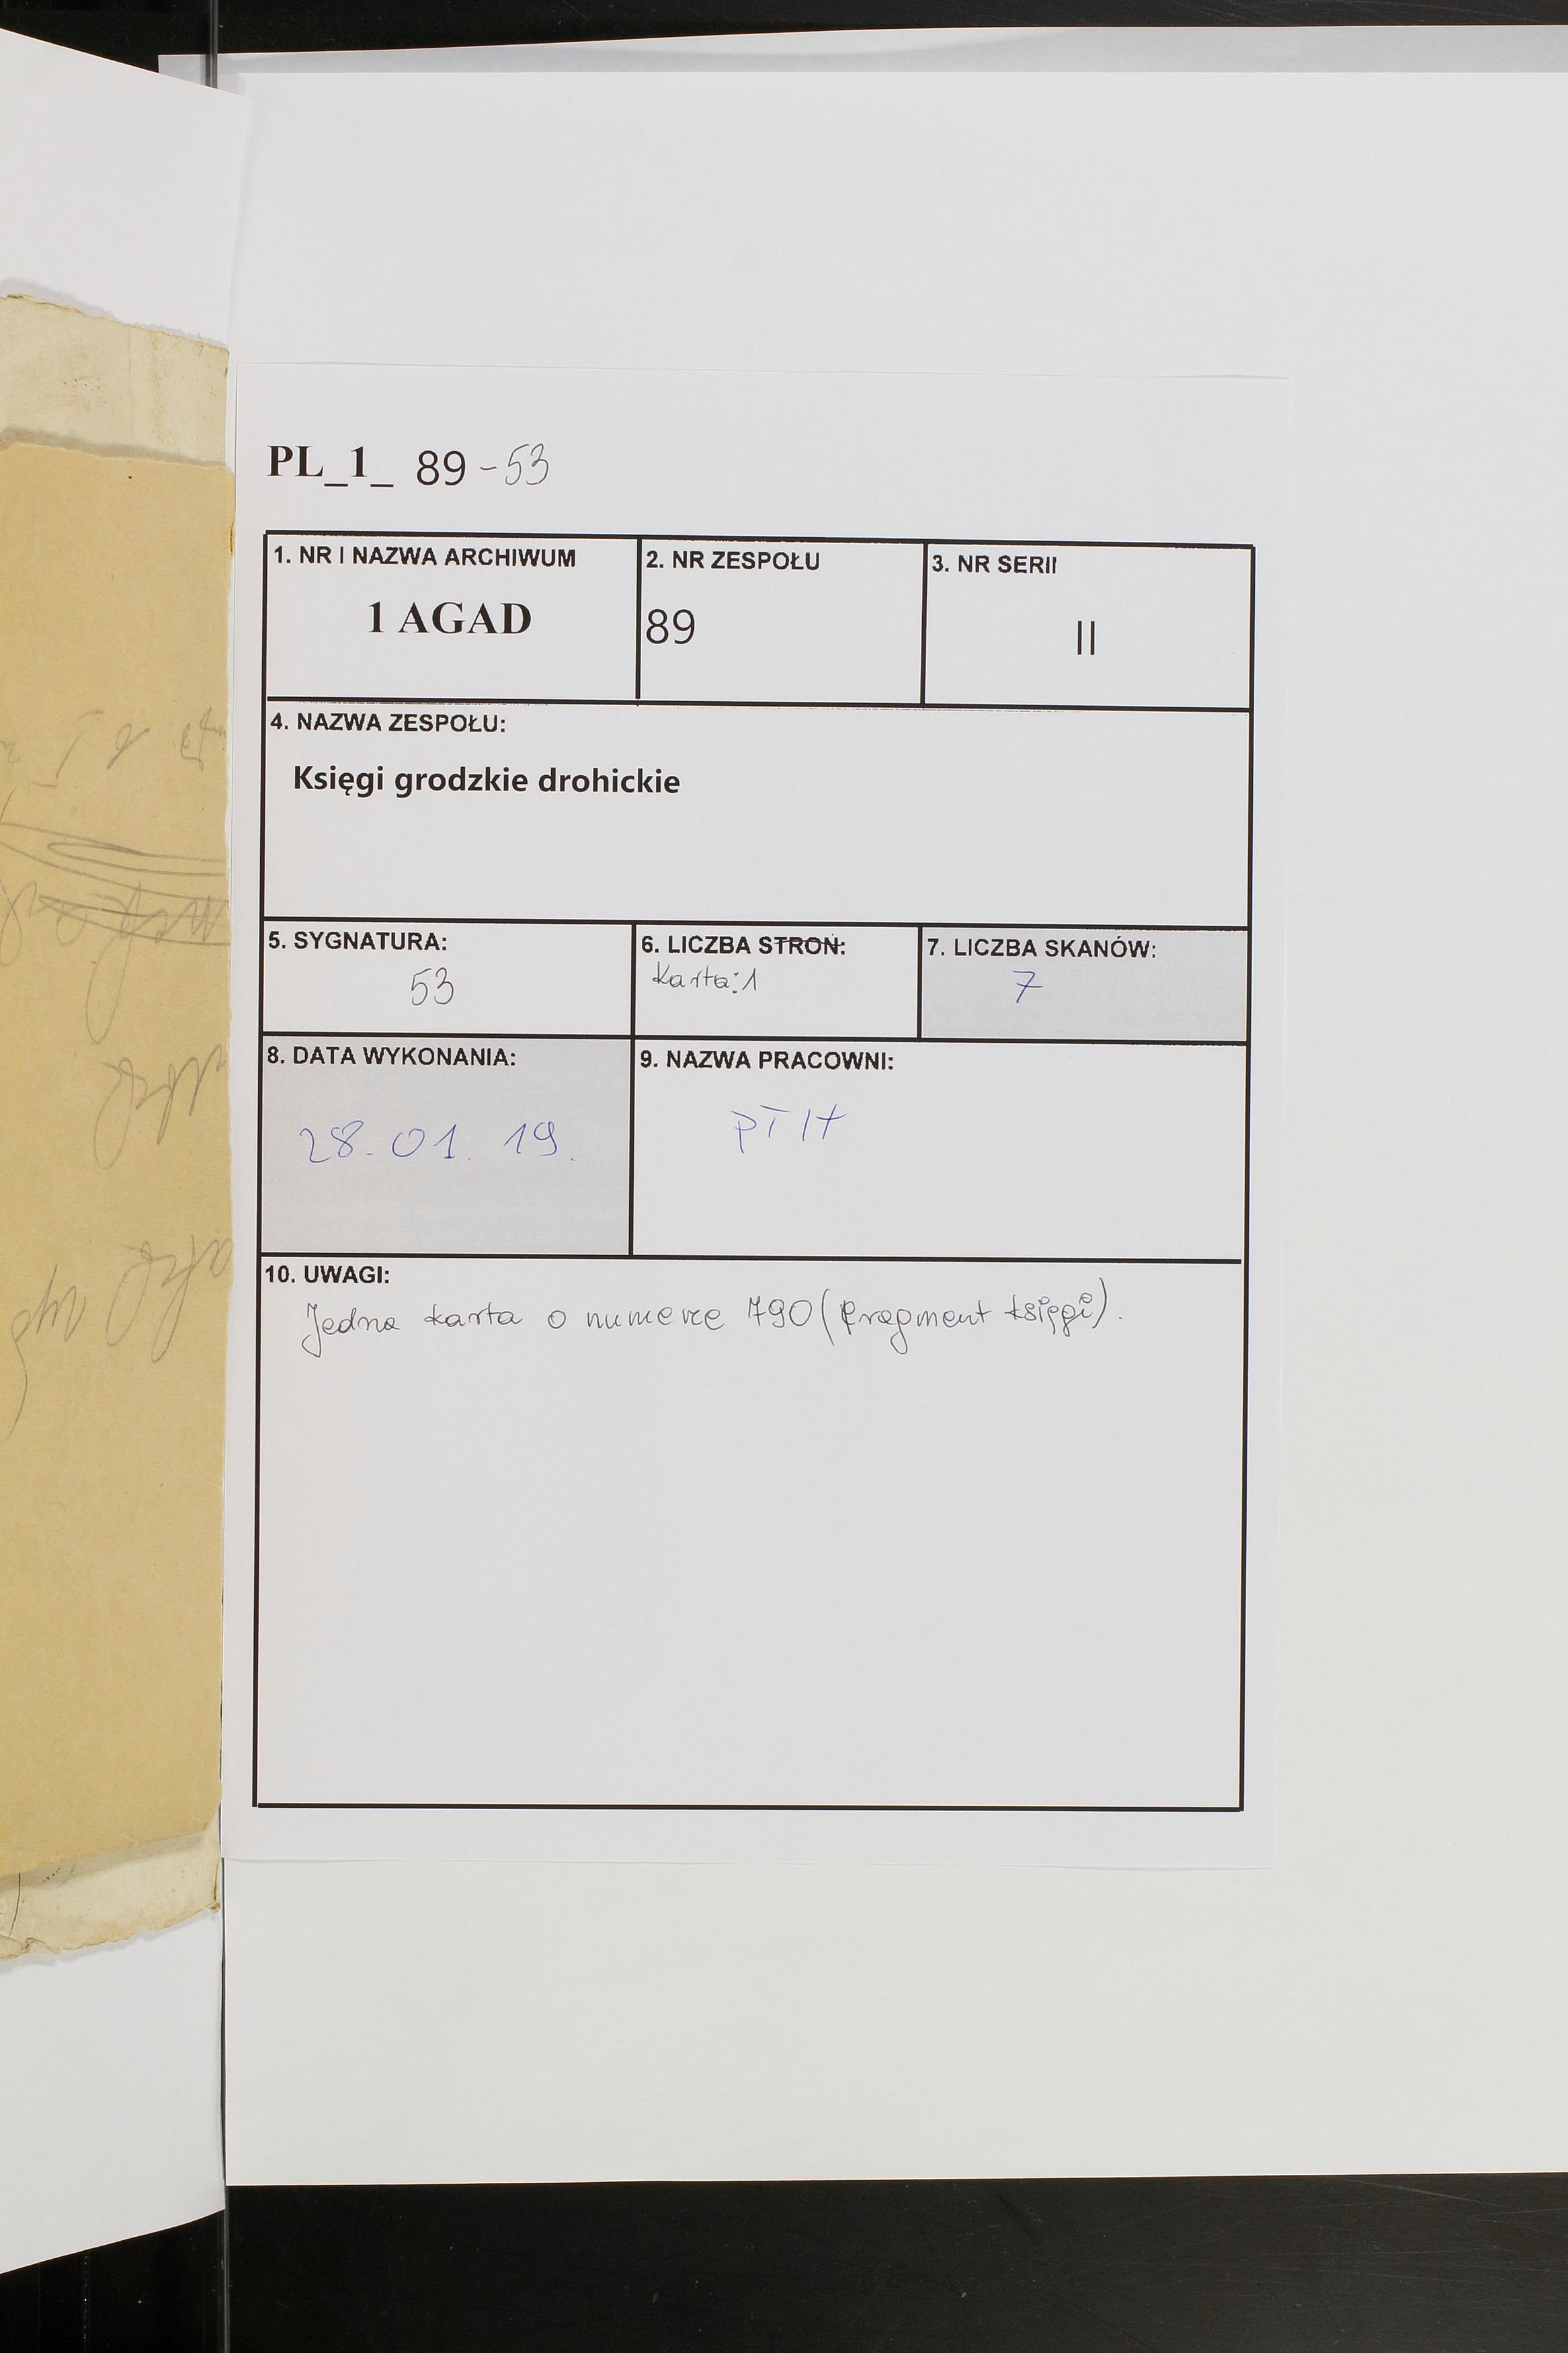 PL_1_ 89-53
1. NR I NAZWA ARCHIWUM
1 AGAD
2. NR ZESPOŁU
89
3. NR SERII
II
4. NAZWA ZESPOŁU:
Księgi grodzkie drohickie
5. SYGNATURA:
53
6. LICZBA STRON:
Karta: 1
7. LICZBA SKANÓW:
7
8. DATA WYKONANIA:
28. 01. 19.
9. NAZWA PRACOWNI:
10. UWAGI:
Jedna karta o numerze 790 (fragment księgi).